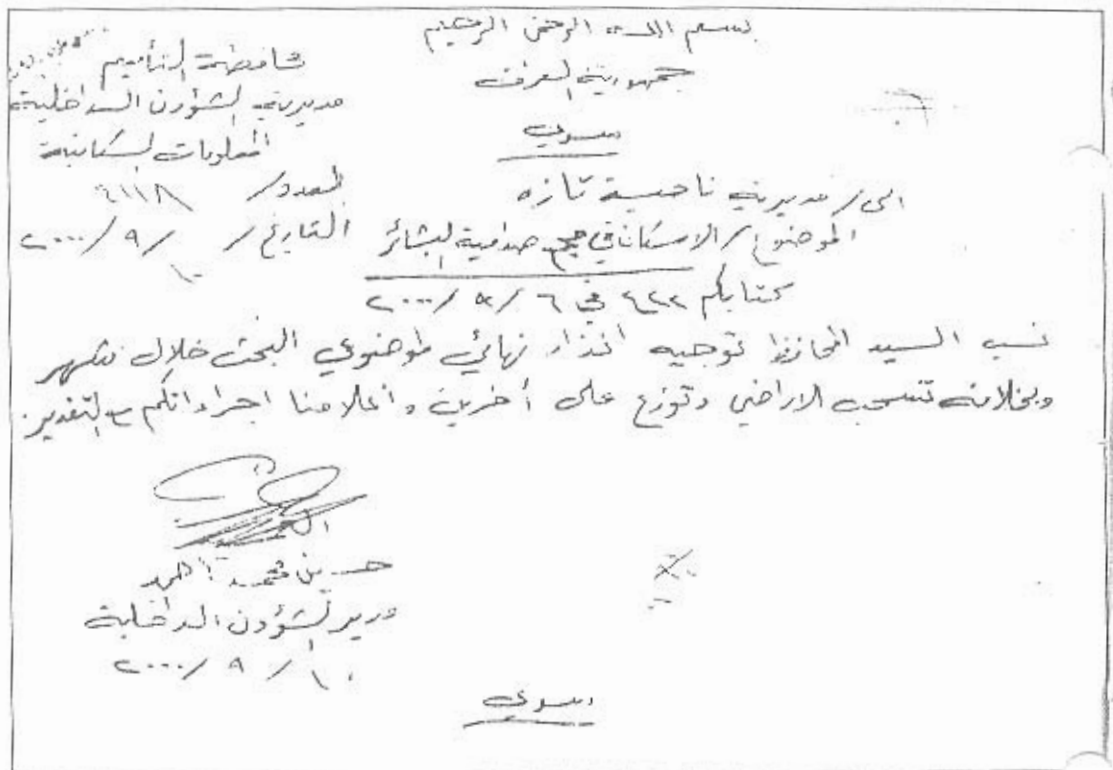 بسم الله الرحمن الرحيم
جمهورية العراق
محافظة التأميم
مديرية الشؤون الداخلية
المعلومات السكانية
سري
العدد/
التاريخ/ ١٠/ ٩/ ٢٠٠٠
الى/ مديرية ناحية تازه
الموضوع/ الاسكان في مجمع صدامية البشائر
كتابكم ٤٢٢ في ٦/ /٢٠٠٠
نسب السيد المحافظ توجيه انذار نهائي لموضوعي البحث خلال شهر
وبخلافه تسحب الاراضي وتوزع على أخرين واعلامنا اجراءاتكم مع التقدير
حسين محمد احمد
مدير الشؤون الداخلية
١٠/ ٩/ ٢٠٠٠
سري